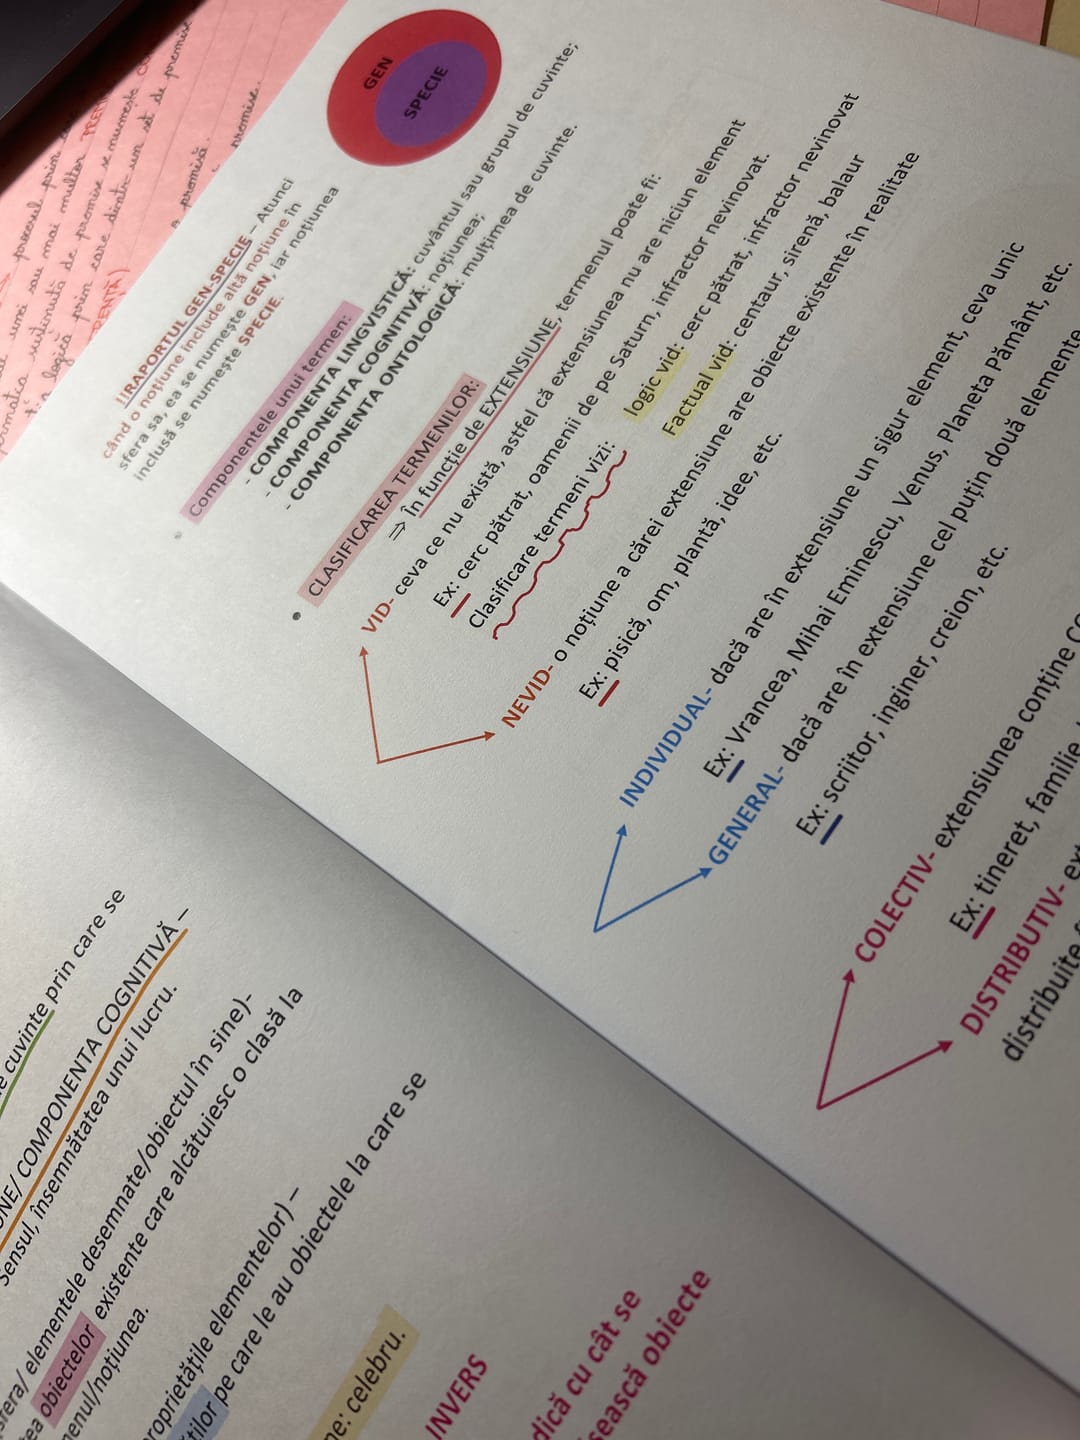 !!RAPORTUL GEN-SPECIE – Atunci
când o noțiune include altă noțiune în
sfera sa, ea se numește GEN, iar noțiunea
inclusă se numește SPECIE.
GEN
SPECIE
Componentele unui termen:
- COMPONENTA LINGVISTICĂ: cuvântul sau grupul de cuvinte;
- COMPONENTA COGNITIVĂ: noțiunea;
- COMPONENTA ONTOLOGICĂ: mulțimea de cuvinte.
• CLASIFICAREA TERMENILOR:
⇒ În funcție de EXTENSIUNE, termenul poate fi:
VID- ceva ce nu există, astfel că extensiunea nu are niciun element
Ex: cerc pătrat, oamenii de pe Saturn, infractor nevinovat.
Clasificare termeni vizi:
logic vid: cerc pătrat, infractor nevinovat
Factual vid: centaur, sirenă, balaur
NEVID- o noțiune a cărei extensiune are obiecte existente în realitate
Ex: pisică, om, plantă, idee, etc.
INDIVIDUAL- dacă are în extensiune un sigur element, ceva unic
Ex: Vrancea, Mihai Eminescu, Venus, Planeta Pământ, etc.
GENERAL- dacă are în extensiune cel puțin două elemente
Ex: scriitor, inginer, creion, etc.
COLECTIV- extensiunea conține
Ex: tineret, familie,
DISTRIBUTIV-
distribuite
cuvinte prin care se
COMPONENTA COGNITIVĂ –
Sensul, însemnătatea unui lucru.
elementele desemnate/obiectul în sine)-
obiectelor existente care alcătuiesc o clasă la
noțiunea.
elementelor) –
pe care le au obiectele la care se
celebru.
INVERS
cu cât se
obiecte
umai sau mai multor
susținută de premise se numește
logică prin care dintr un set de premise
premisă.
promise.